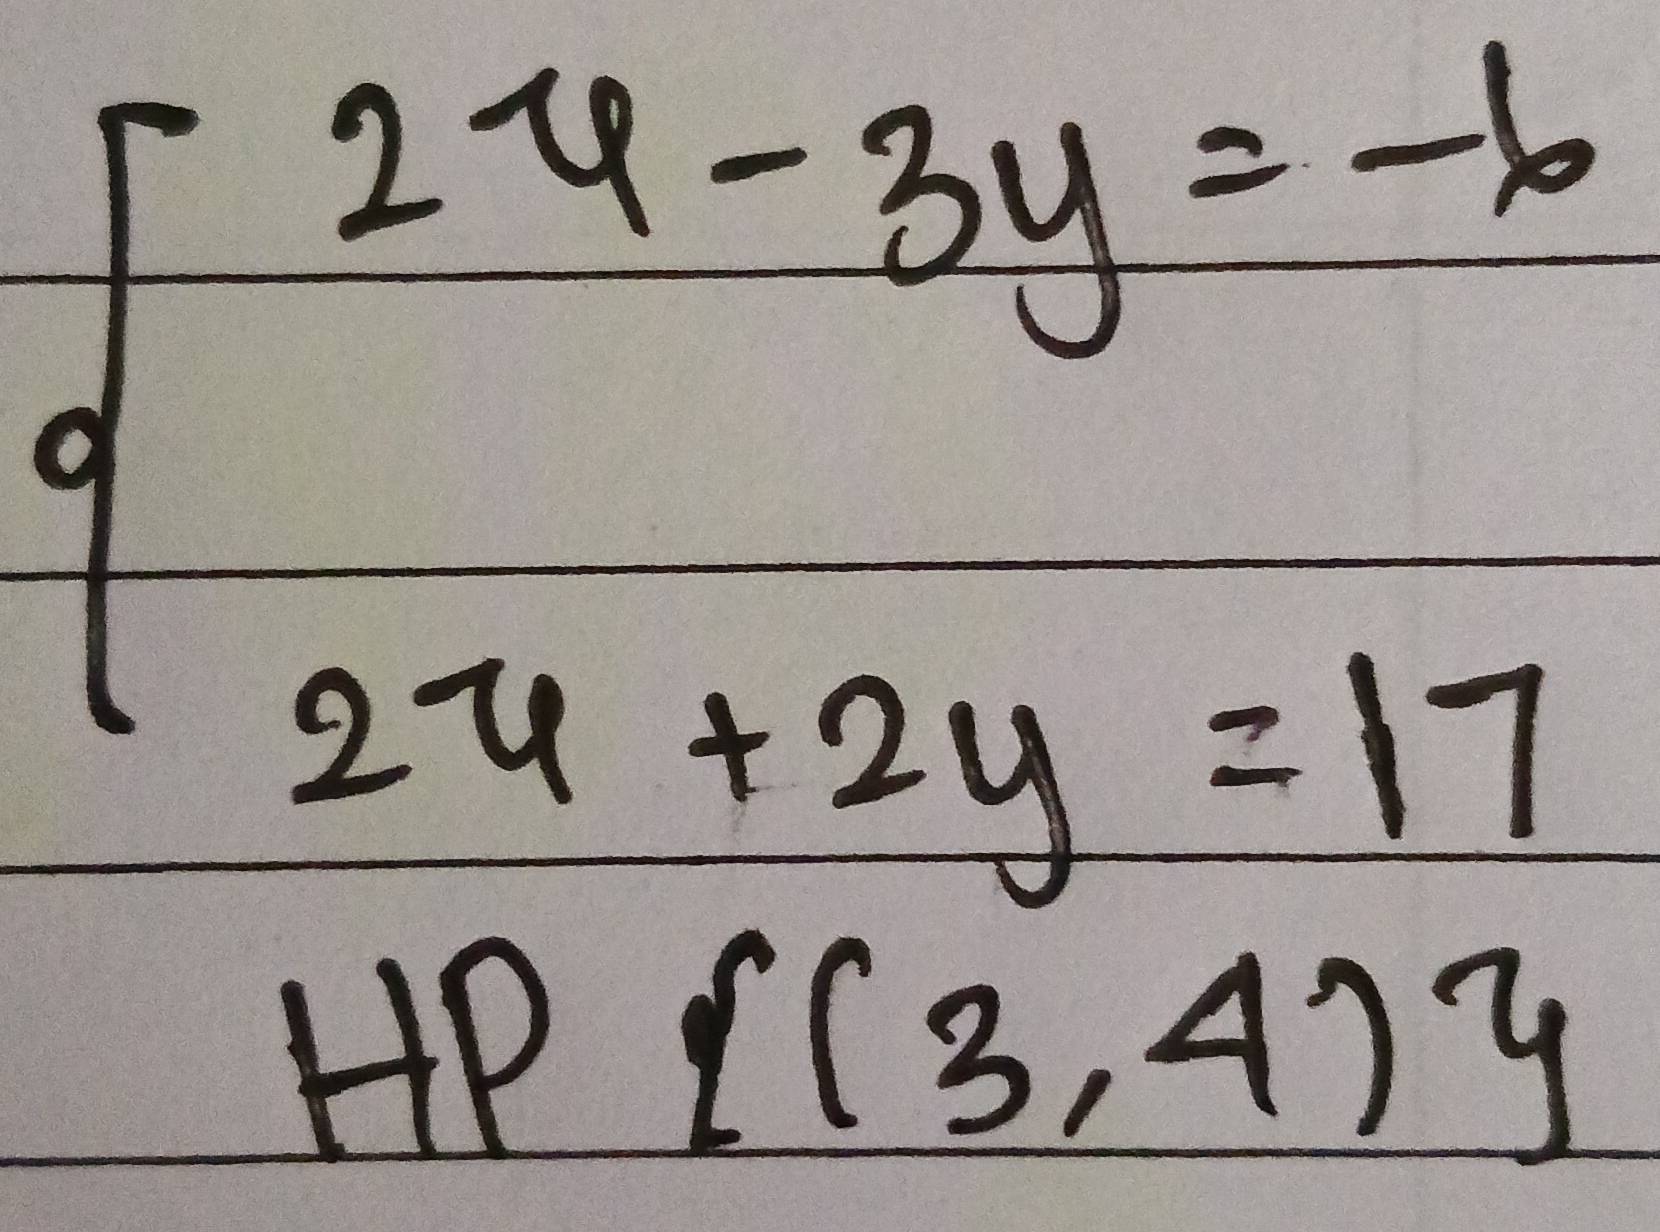 2x - 3y = -6
2x + 2y = 17
HP {(3, 4)}